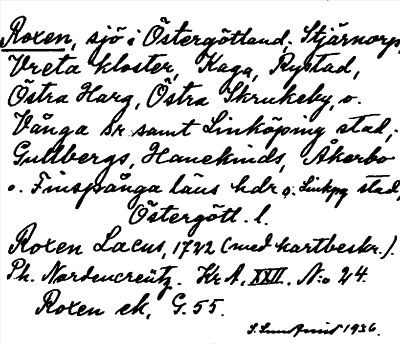 Roxen, sjö i Östergötland, Stjärnorp,
Vreta kloster, Kaga, Rystad,
Östra Harg, Östra Skrukeby, o.
Vånga sr samt Linköping stad,
Gullbergs, Hanekinds, Åkerbo
o. Finspånga läns hdr o. Linkpg stad,
Östergötl. l.
Roxen Lacus, 1722 (med kartbeskr.).
Ph. Nordencreutz. Kr A. XXII. N:o 24.
Roxen ek, G. 55.
1936.